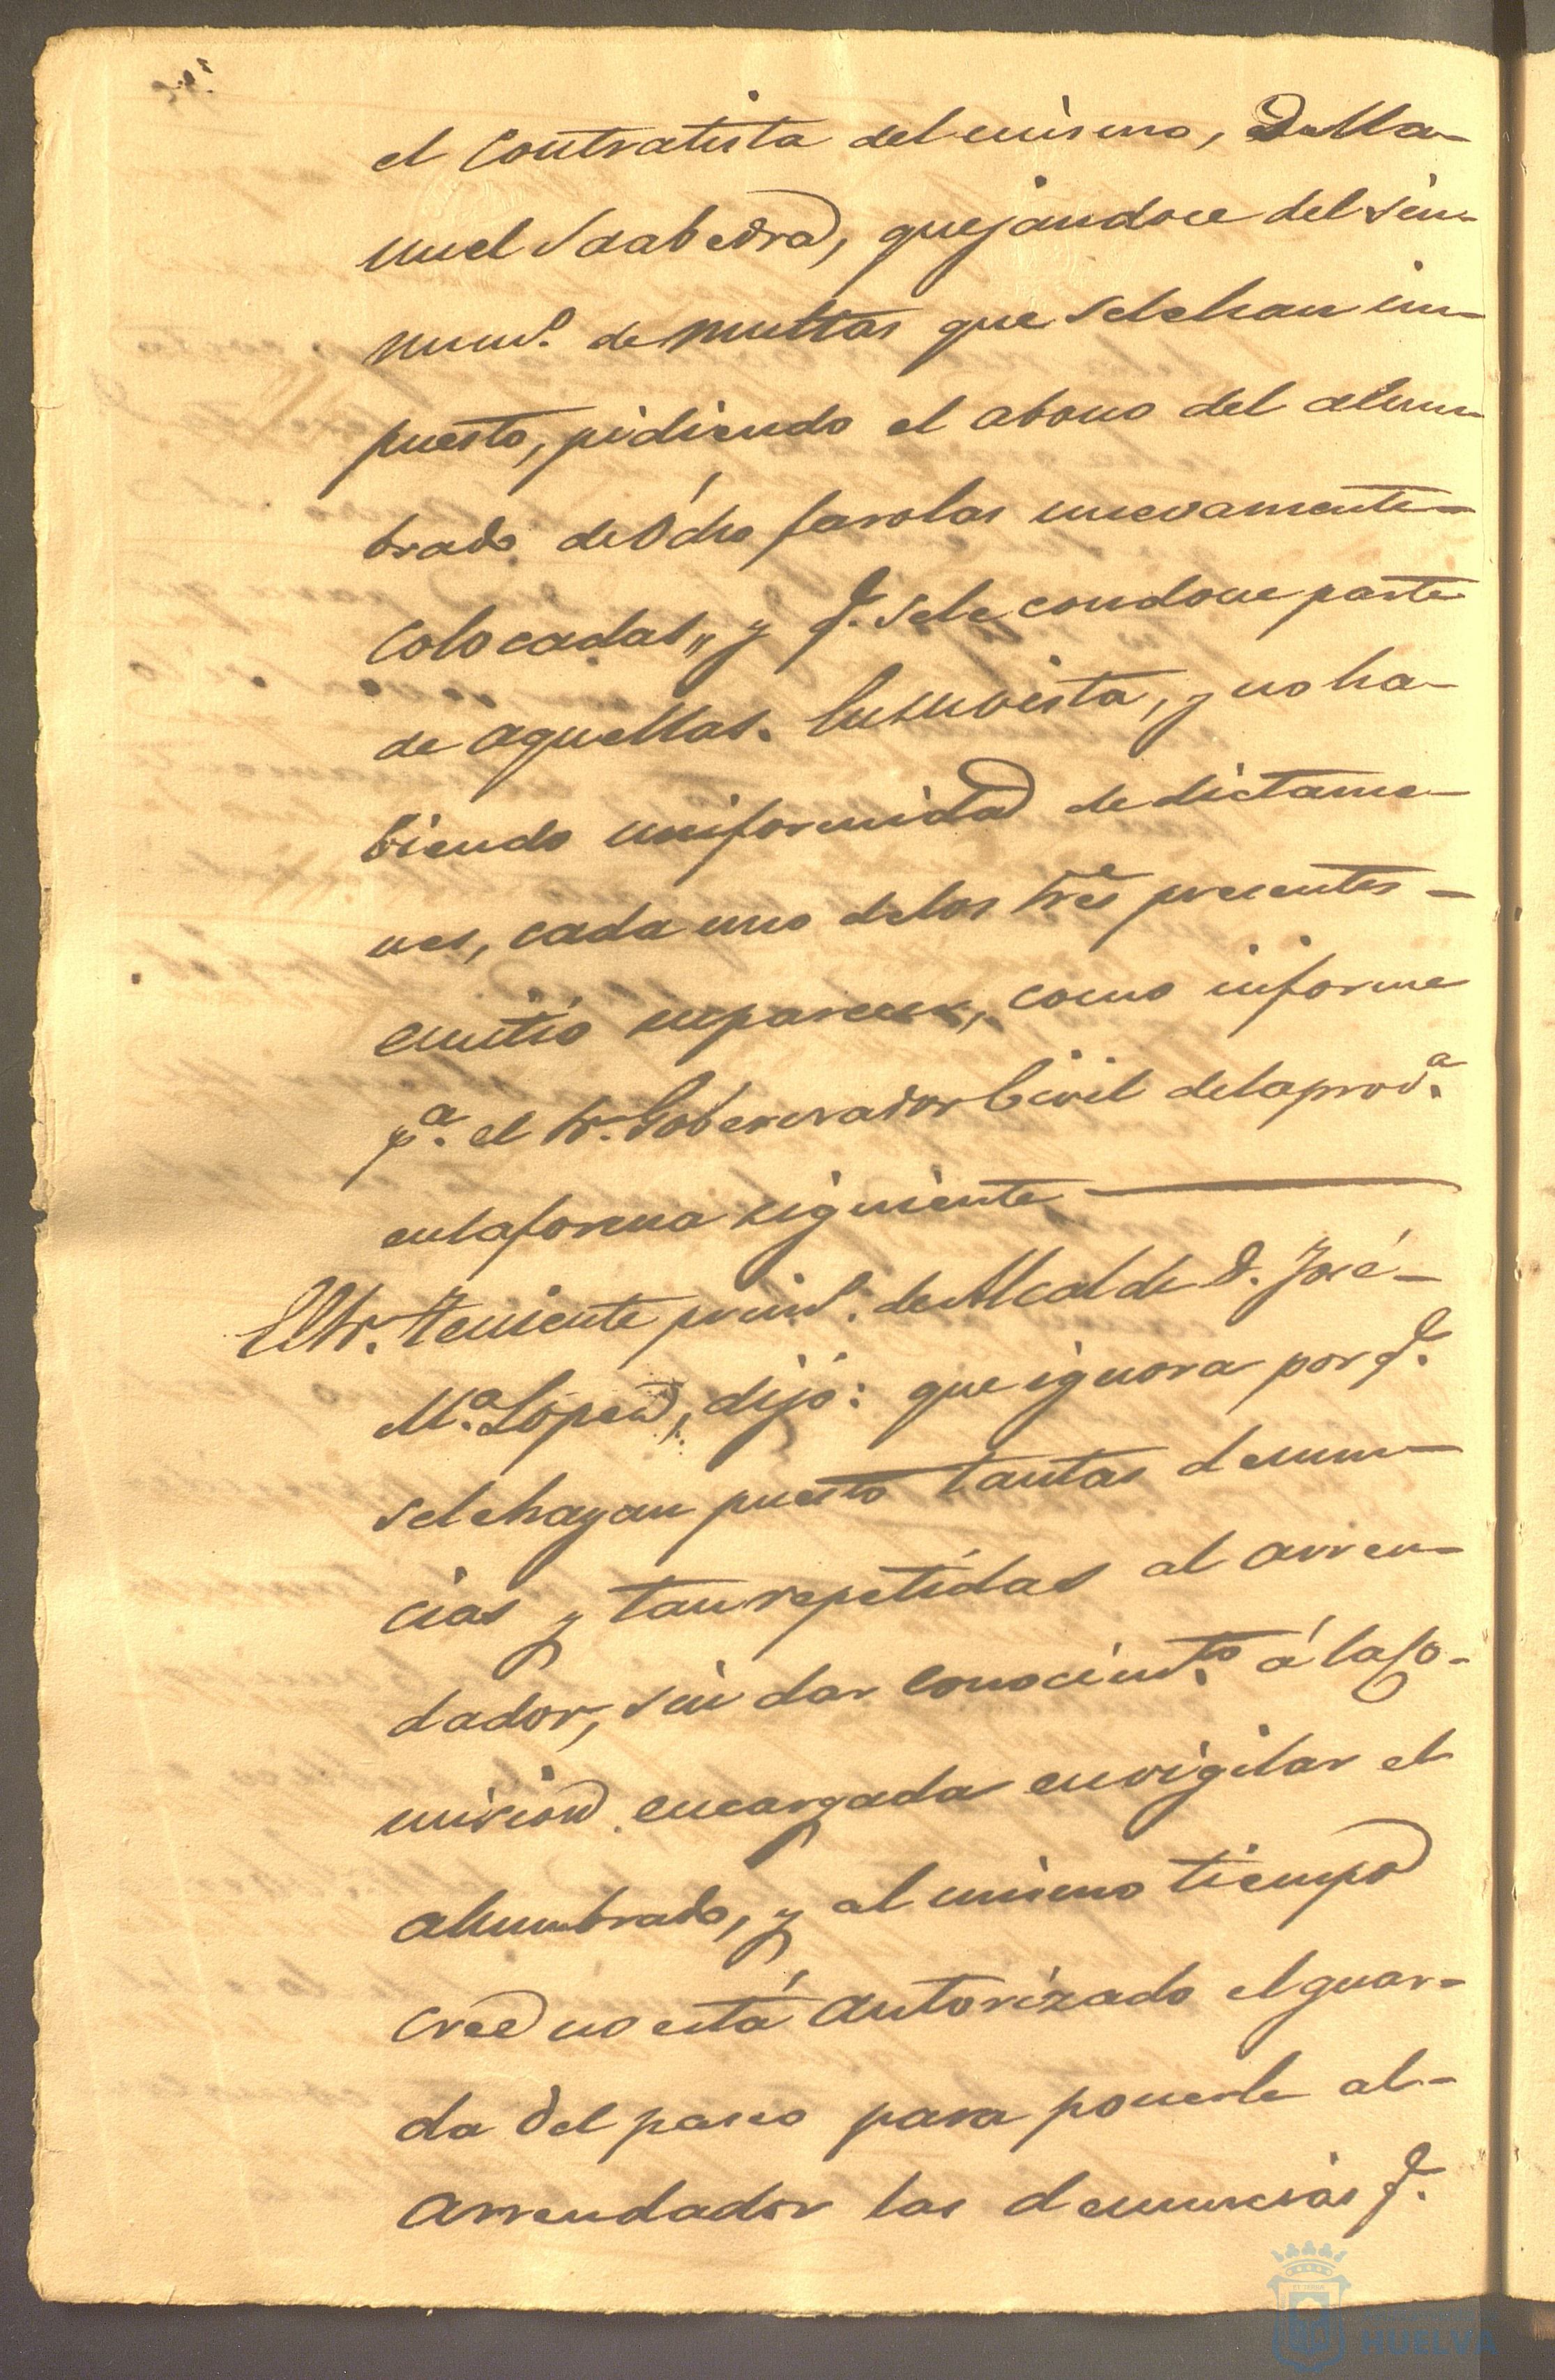 el contratista del mismo, D. Ma-
nuel Saabedra, quejandoce del sin-
num.º de multas que sele han im-
puesto, pidiendo el abono del alum-
brado de Ócho farolas nuevamente
colocadas,, y q.e sele condone parte
de aquellas. En su vista, y no ha-
biendo uniformidad de dictame-
nes, cada uno delos tres precentes
emitió su parecer, como informe
p.a el Sr. Gobernador Civil dela prov.a
en la forma siguiente
El Sr. Teniente prim.º de Alcalde D. José
M.a Lopez, dijo: que ignora por q.e
sele hayan puesto tantas denun-
cias y tan repetidas al arren-
dador, sin dar conocim.to á la Co-
mision encargada en vigilar el
alumbrado, y al mismo tiempo
cree no está autorizado el guar-
da del paseo para ponerle al
arrendador las denuncias q.e
HUELVA